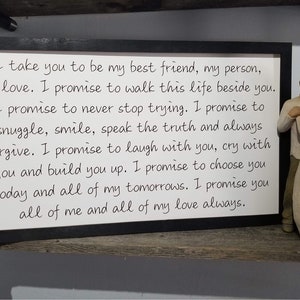 I take you to be my best friend, my person,
love. I promise to walk this life beside you.
I promise to never stop trying. I promise to
snuggle, smile, speak the truth and always
forgive. I promise to laugh with you, cry with
you and build you up. I promise to choose you
today and all of my tomorrows. I promise you
all of me and all of my love always.